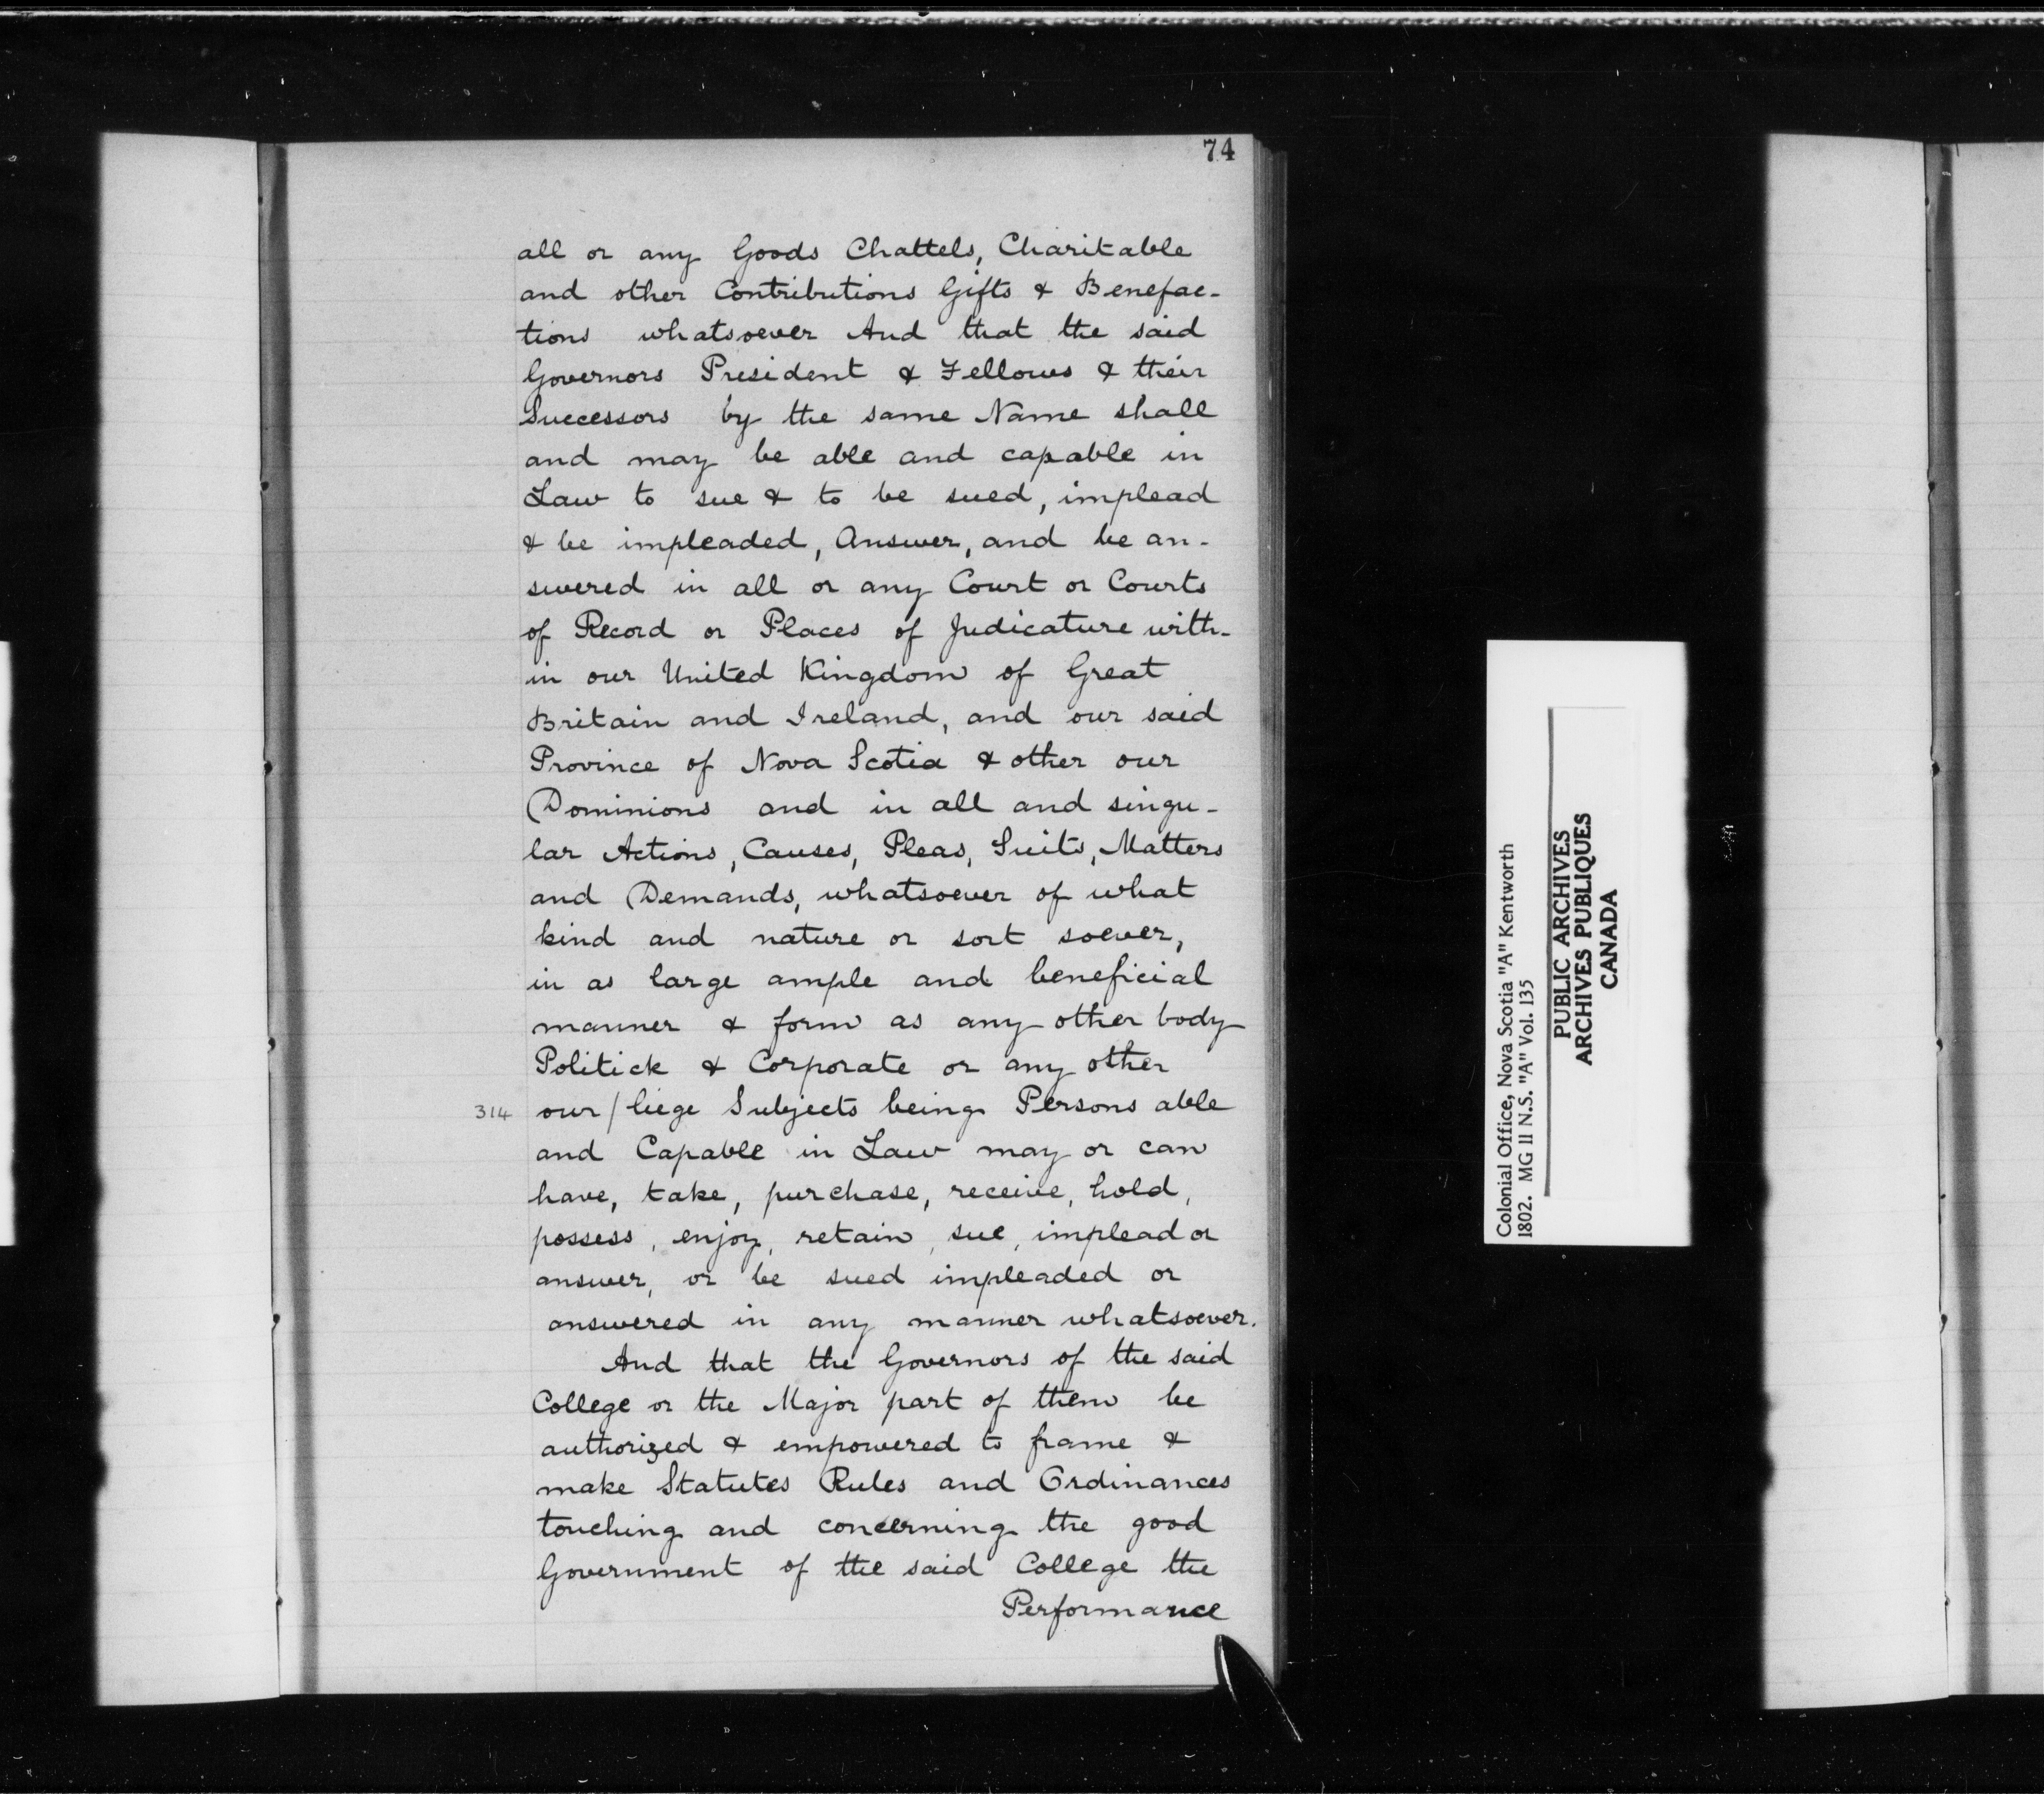 74
all or any Goods Chattels, Charitable
and other Contributions Gifts & Benefac-
tions whatsoever And that the said
Governors President & Fellows & their
Successors by the same Name shall
and may be able and capable in
Law to sue & to be sued, implead
& be impleaded, Answer, and be an-
swered in all or any Court or Courts
of Record or Places of Judicature with-
in our United Kingdom of Great
Britain and Ireland, and our said
Province of Nova Scotia & other our
Dominions and in all and singu-
lar Actions, Causes, Pleas, Suits, Matters
and Demands, whatsoever of what
kind and nature or sort soever,
in as large ample and beneficial
manner & form as any other body
Politick & Corporate or any other
314 our/liege Subjects being Persons able
and Capable in Law may or can
have, take, purchase, receive, hold,
possess, enjoy, retain, sue, implead or
answer, or be sued impleaded or
answered in any manner whatsoever.
And that the Governors of the said
College or the Major part of them be
authorized & empowered to frame &
make Statutes Rules and Ordinances
touching and concerning the good
Government of the said College the
Performance
Colonial Office, Nova Scotia "A" Kentworth
1802. MG II N.S. "A" Vol. 135
PUBLIC ARCHIVES
ARCHIVES PUBLIQUES
CANADA